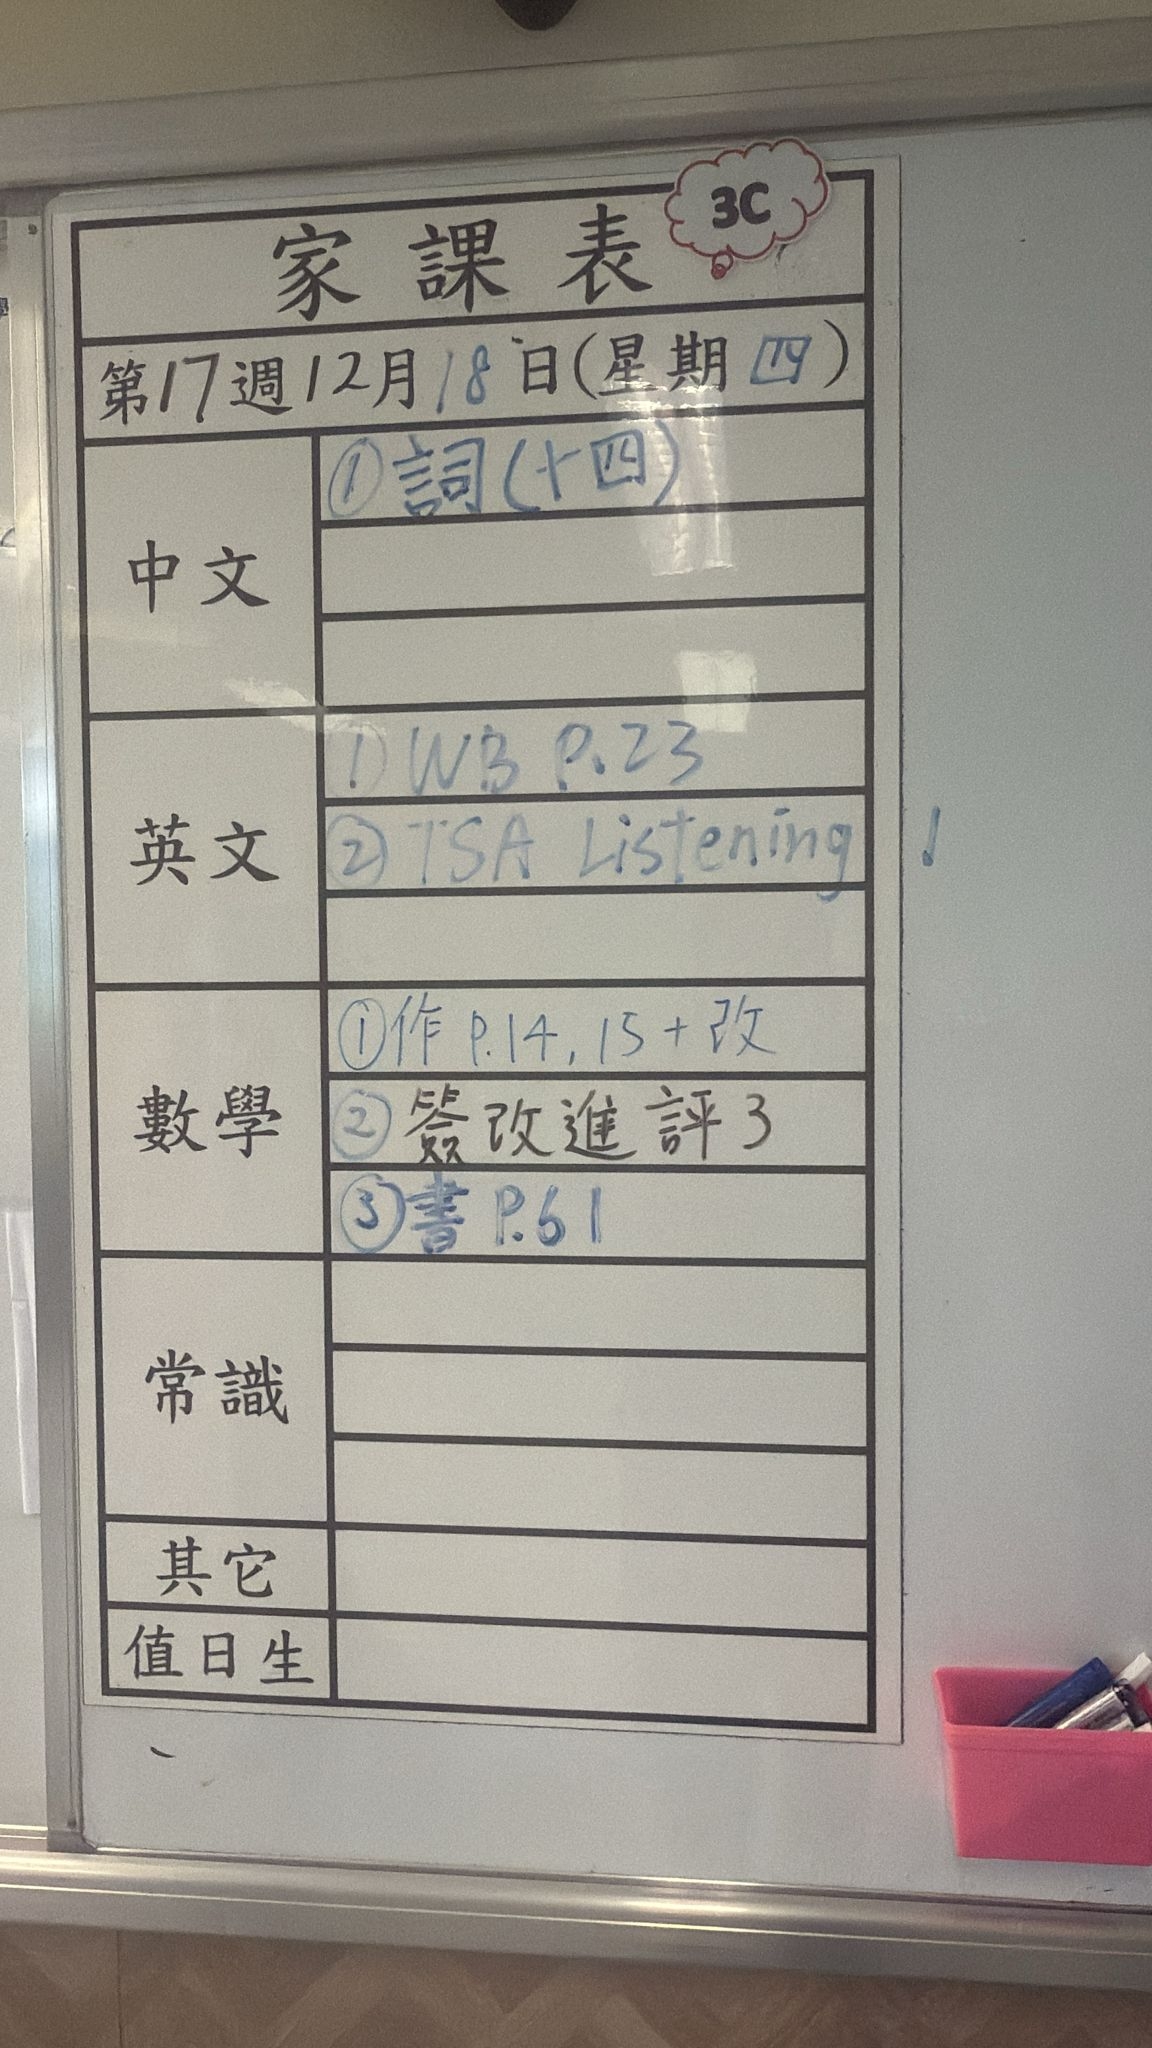 3C
家課表
第17週12月18日(星期四)
中文
①詞(十四)
英文
①WB P.23
②TSA Listening
數學
①作 P.14, 15 + 改
②簽改進評3
③書 P.61
常識
其它
值日生